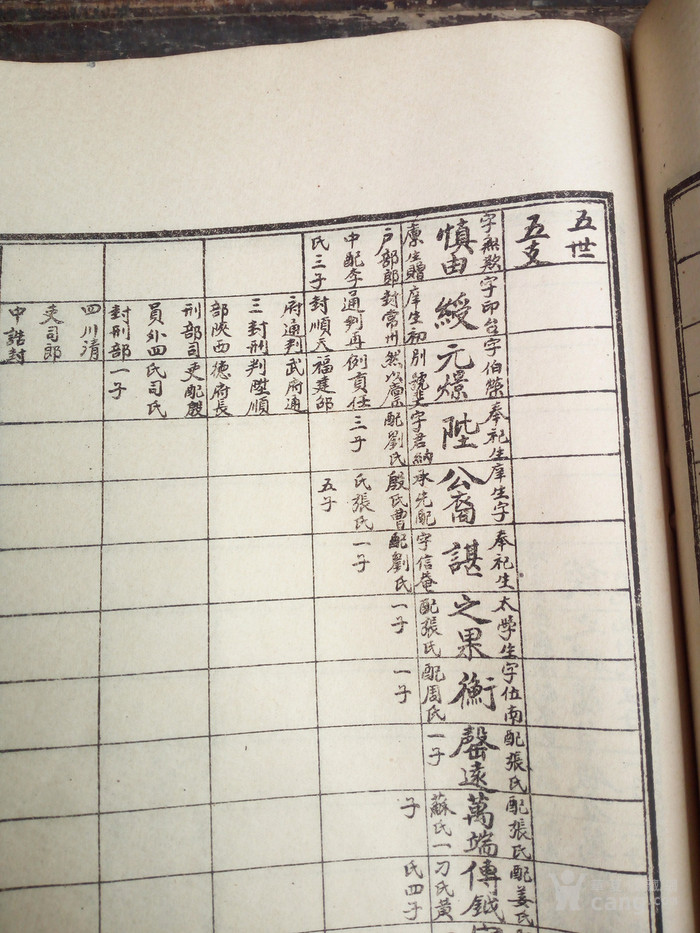 五世
五支
字無欺
慎由
廩生贈
户部郎
中配李
氏三子
字印台
綬
庠生初
封常州
通判再
封順天
府通判
三封刑
部陝西
刑部司
員外四
封刑部
四川清
吏司郎
中誥封
字伯榮
元燝
別號斐
然以廩
例貢任
福建邵
武府通
判陞順
德府長
吏配殷
氏司氏
一子
奉祀生
陛
字君納
配劉氏
三子
庠生字
公裔
承先配
殷氏曹
氏張氏
五子
奉祀生
諶
字信菴
配劉氏
一子
太學生
之果
配張氏
一子
字伍南
衡
配周氏
一子
配張氏
罄遠
一子
配張氏
萬端
蘇氏一
子
配姜氏
傳鉞
刁氏黃
氏四子